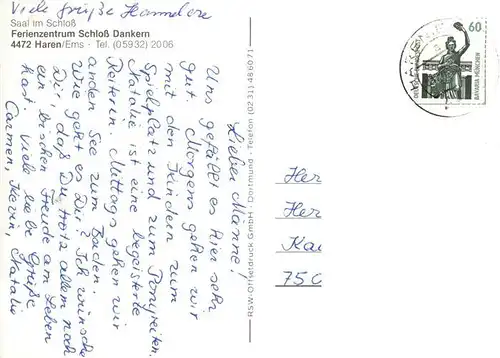 Viele Grüße Hannelore
Saal im Schloß
Ferienzentrum Schloß Dankern
4472 Haren/Ems · Tel. (05932) 2006
Lieber Manne!
Uns gefällt es hier sehr
gut. Morgens gehen wir
mit den Kindern zum
Spielplatz und zum Ponyreiten.
Natalie ist eine begeisterte
Reiterin. Mittags gehen wir
an den See zum Baden.
Wie geht es Dir? Ich wünsche
Dir, daß Du trotz allem noch
ein bischen Freude am Leben
hast. Viele liebe Grüße
Carmen, Kevin, Natalie
RSW-Offsetdruck GmbH · Dortmund · Telefon (02 31) 48 60 71
60
BAVARIA MÜNCHEN
Her
Her
Kai
75